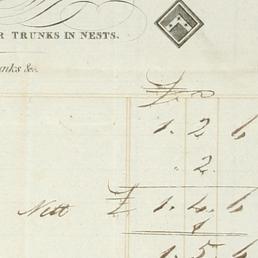 R TRUNKS IN NESTS.
nks &c.
£ s D
1. 2. 6
. 2.
Nett £ 1. 4. 6
1
1. 5. 6